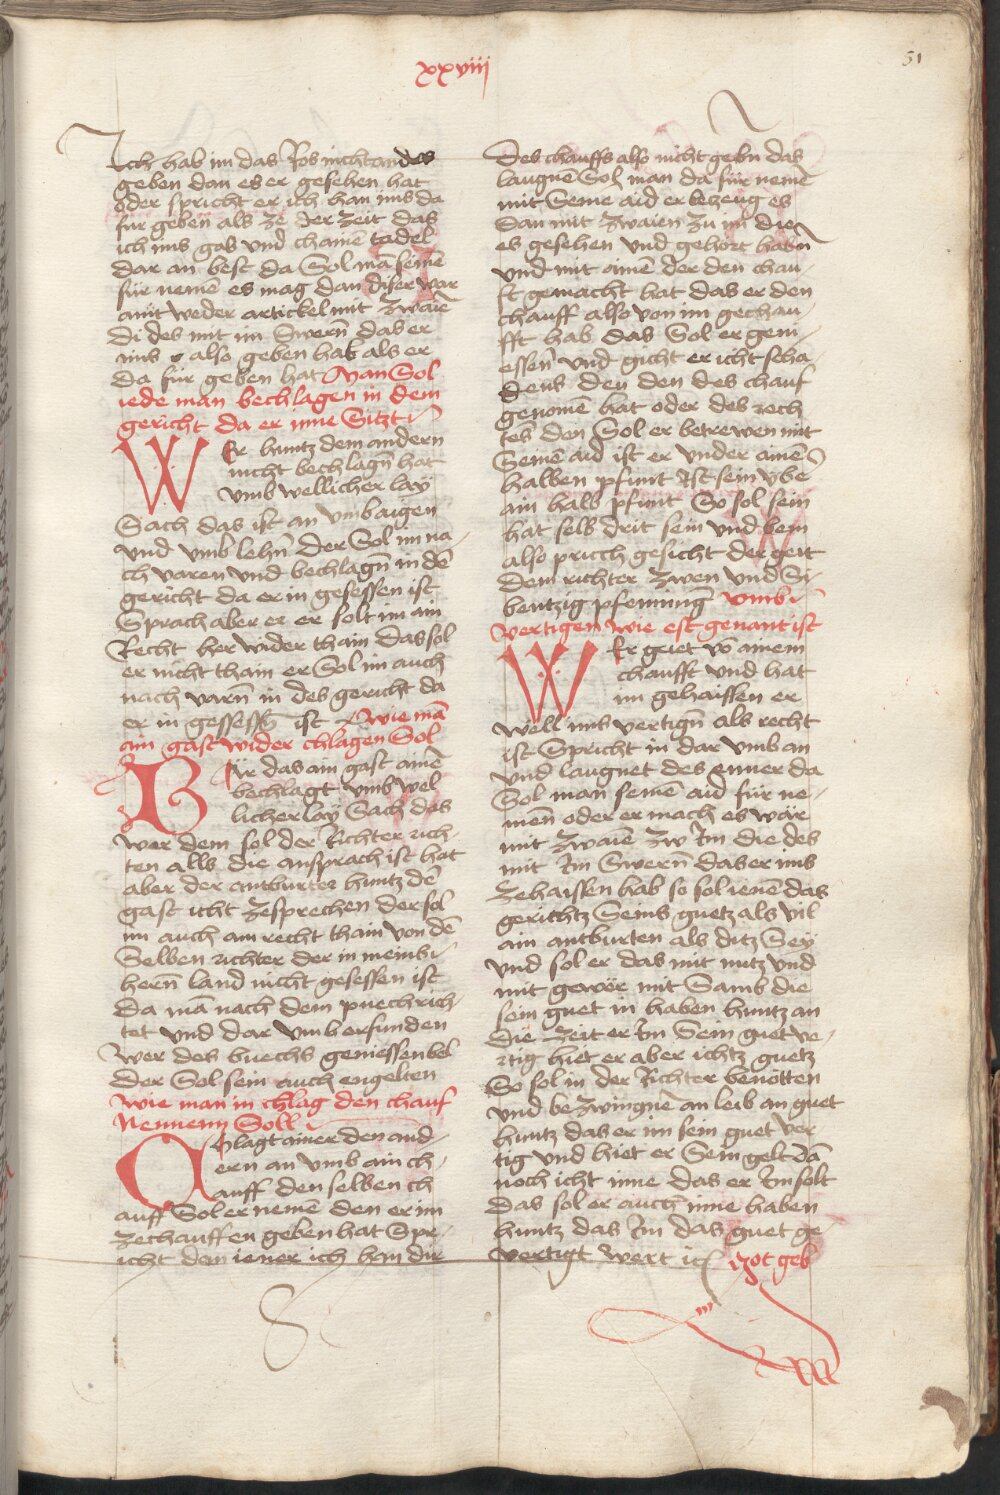 xxviii
51
Ich hab im das Ros nicht anders
geben dan es er gesehen hat
oder spricht er ich han ims da
für geben als ze der zeit das
ich ims gab vnd chainē tadel
dar an west da Sol mā seinē
für nemē es mag dan diser war
amit weder artickel mit zwaiē
di des mit im Swern̄ das er
ims also geben hab als er
da für geben hat Man Sol
iede man bechlagen in dem
gericht da er inne Sitzt
WEr huntz dem andern
nicht bechlagn̄ hat
vmb wellicher lay
Sach das ist an vmb aigen
vnd vmb lehn̄ Der Sol im na
ch varen vnd bechlagn̄ in dē
gericht da er in gesessen ist
Sprach aber er er solt im ain
Recht her wider thain das sol
er nicht thain er Sol im auch
nach varn̄ in des gericht da
er in gessessn̄ ist wie mā
ain gast wider chlagen Sol
Är das ain gast ainē
bechlagt vmb wel
licher lay Sach das
wer dem sol der Richter rich
ten alls die ansprach ist hat
aber der antburter huntz dē
gast icht zesprechen der sol
im auch ain recht thain von dē
Selben richter der in meinsˢ
hern̄ land nicht gesessen ist
da mā nach dem puech rich
tet vnd dar vmb erfunden
wer des buechs geniessen wel
der Sol sein auch engelten
wie man in chlag den chauf
Nennenn Soll
Chlagt ainer den and
ern an vmb ain ch
auff den selben ch
auff Sol er nemē den er im
ze chauffen geben hat Spr
icht dem iener ich bem dir
des chauffs also nicht gebn̄ das
laugnē Sol man da für nemē
mit Seinē aid er bezeug es
dan mit zwaien zu im die
es gesehen vnd gehört habn̄
vnd mit ainē der den chau
ft gemacht hat das er den
chauff also von im gechau
fft hab das Sol er geni
essen̄ vnd gicht er icht scha
dens den den des chauf
genomē hat oder des rech
tes den Sol er betrewen mit
Seinē aid ist er vnder ainē
halben pfunt Ist sein vbe
ain halb pfunt So sol sein
hat selb drit sein vnd wem
also pricch gesicht der geit
dem richter zwen vnd Si
bentzig pfenninḡ vmb
vertigen wie est genant ist
WEr guet vō ainem
chaufft vnd hat
im gehaissen er
well ims vertign̄ als recht
ist Spricht in dar vmb an
vnd laugnet des enner da
Sol man seinē aid für ne
men̄ oder er mach es wär
mit zwaiē zw Im die des
mit Im Swern̄ das er ims
zehaissen hab so sol ienē das
gerichtz Seins guetz als vil
ain antburten als ditz Sey
vnd sol er das mit nutz vnd
mit gewer mit Samb die
sein guet in haben huntz an
die zeit er Im Sein guet ve
rtig hiet er aber ichtz guetz
So sol in der Richter benötten
vnd be zwingnē an leib an guet
huntz das er im sein guet ver
tig vnd hiet er Sein gelt dā
noch icht inne das er Im solt
das sol er auch inne haben
huntz das Im das guet ge
vertigt wert ic